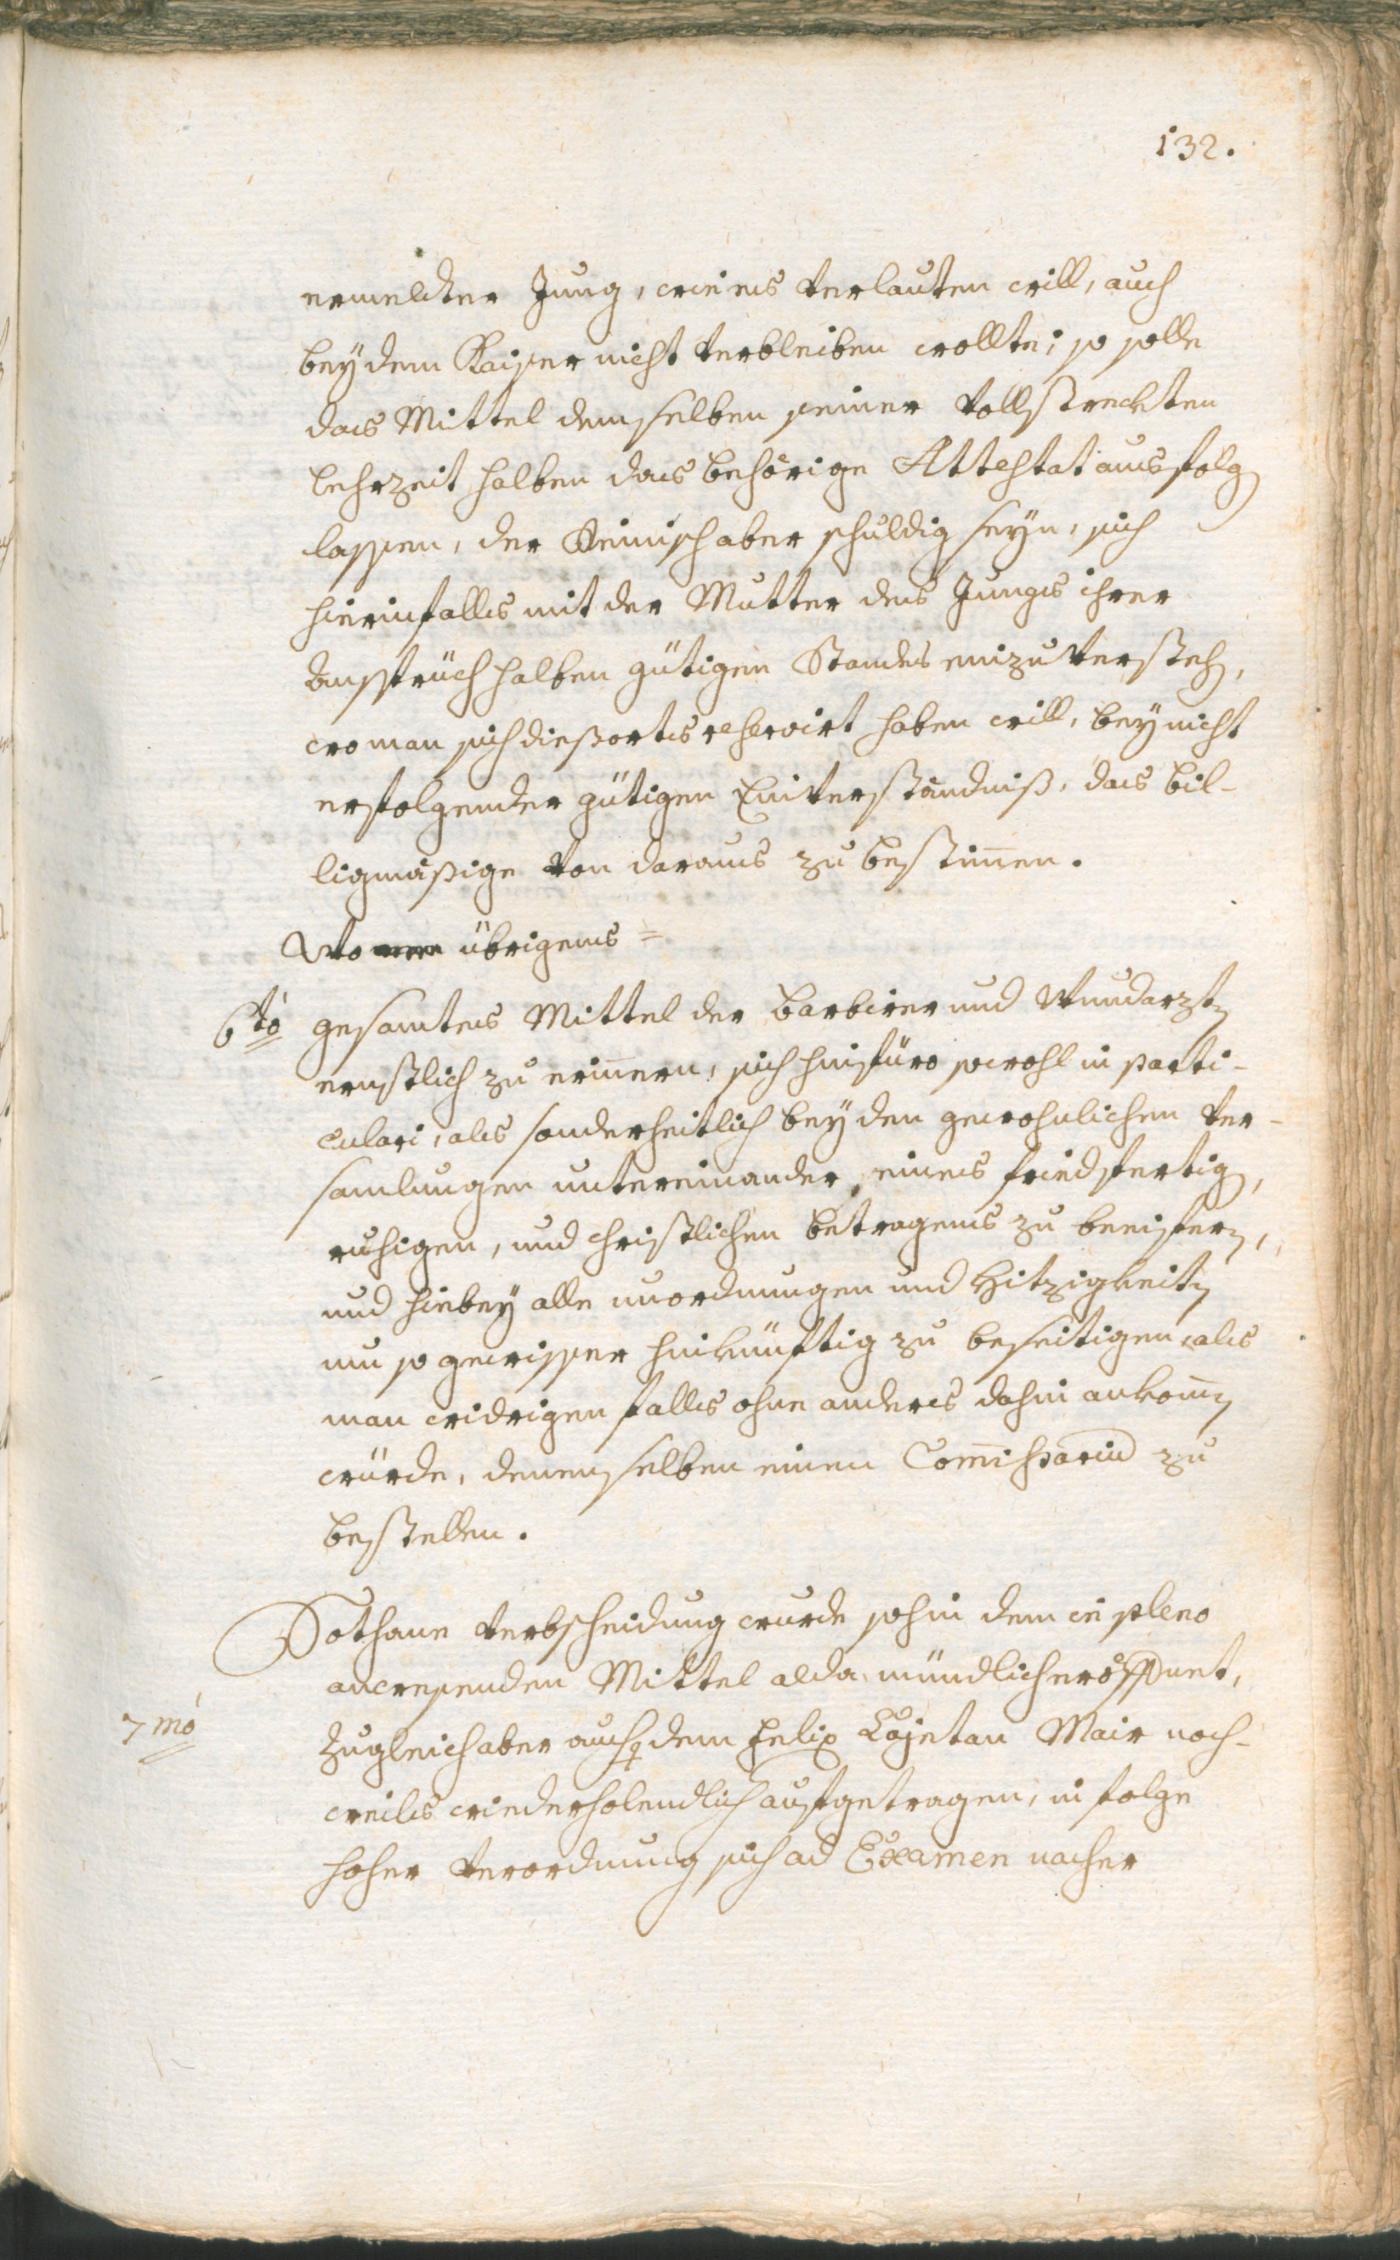 132.
ermelter Jung, wie es verlauten will, auch
bey dem Kaiser nicht verbleiben wollte; so solle
das Mittel demselben seiner vollstreckten
Lehrzeit halben das behörige Attestat ausfolg
lassen, der aber schuldig seyn, sich
hierinfalls mit der Mutter des Jungs ihrer
Ansprüch halben gütigen Standes einzuversteh,
wo man sich dießorts reservirt haben will, bey nicht
erfolgender gütigen Einverständniß, das bil-
ligmäßige von daraus zu bestim̄en.
Wo übrigens =
6tò gesamtes Mittel der Barbierer und Wundarzt
ernstlich zu erin̄ern, sich hinfüro sowohl in parti-
culari, als sonderheitlich bey den gewohnlichen Ver-
samlungen untereinander eines friedfertig,
ruhigen, und christlichen Betragens zu beeifern,
und hiebey alle unordnungen und Hitzigkeit
um so gewisser hinkünftig zu beseitigen, als
man widrigen falls ohne anders dahin ankom̄
würde, denenselben einen Com̄issarium zu
bestellen.
Sothane Verbscheidung wurde sohin dem in pleno
anwesenden Mittel alda mündlich eröffnet,
7mò
zugleich aber auch dem Felix Cajetan Mair noch-
weils wiederholendlich aufgetragen, in folge
hoher Verordnung sich ad Examen nacher